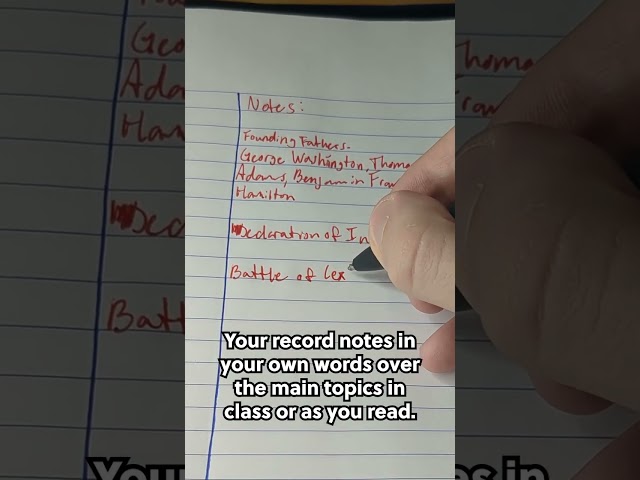 Notes:
Founding Fathers.
George Washington, Thoma
Adams, Benjamin Fran
Hamilton
Declaration of In
Battle of Lex
Your record notes in
your own words over
the main topics in
class or as you read.